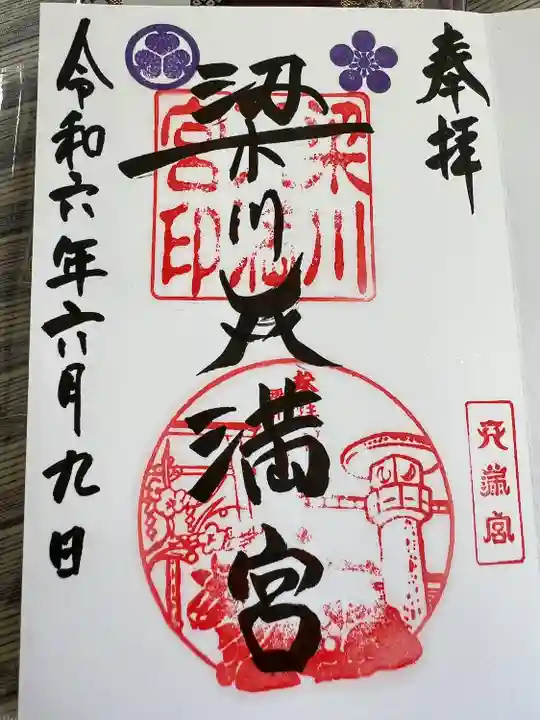 奉拝
梁川天満宮
梁川天満宮印
天満宮
令和六年六月九日